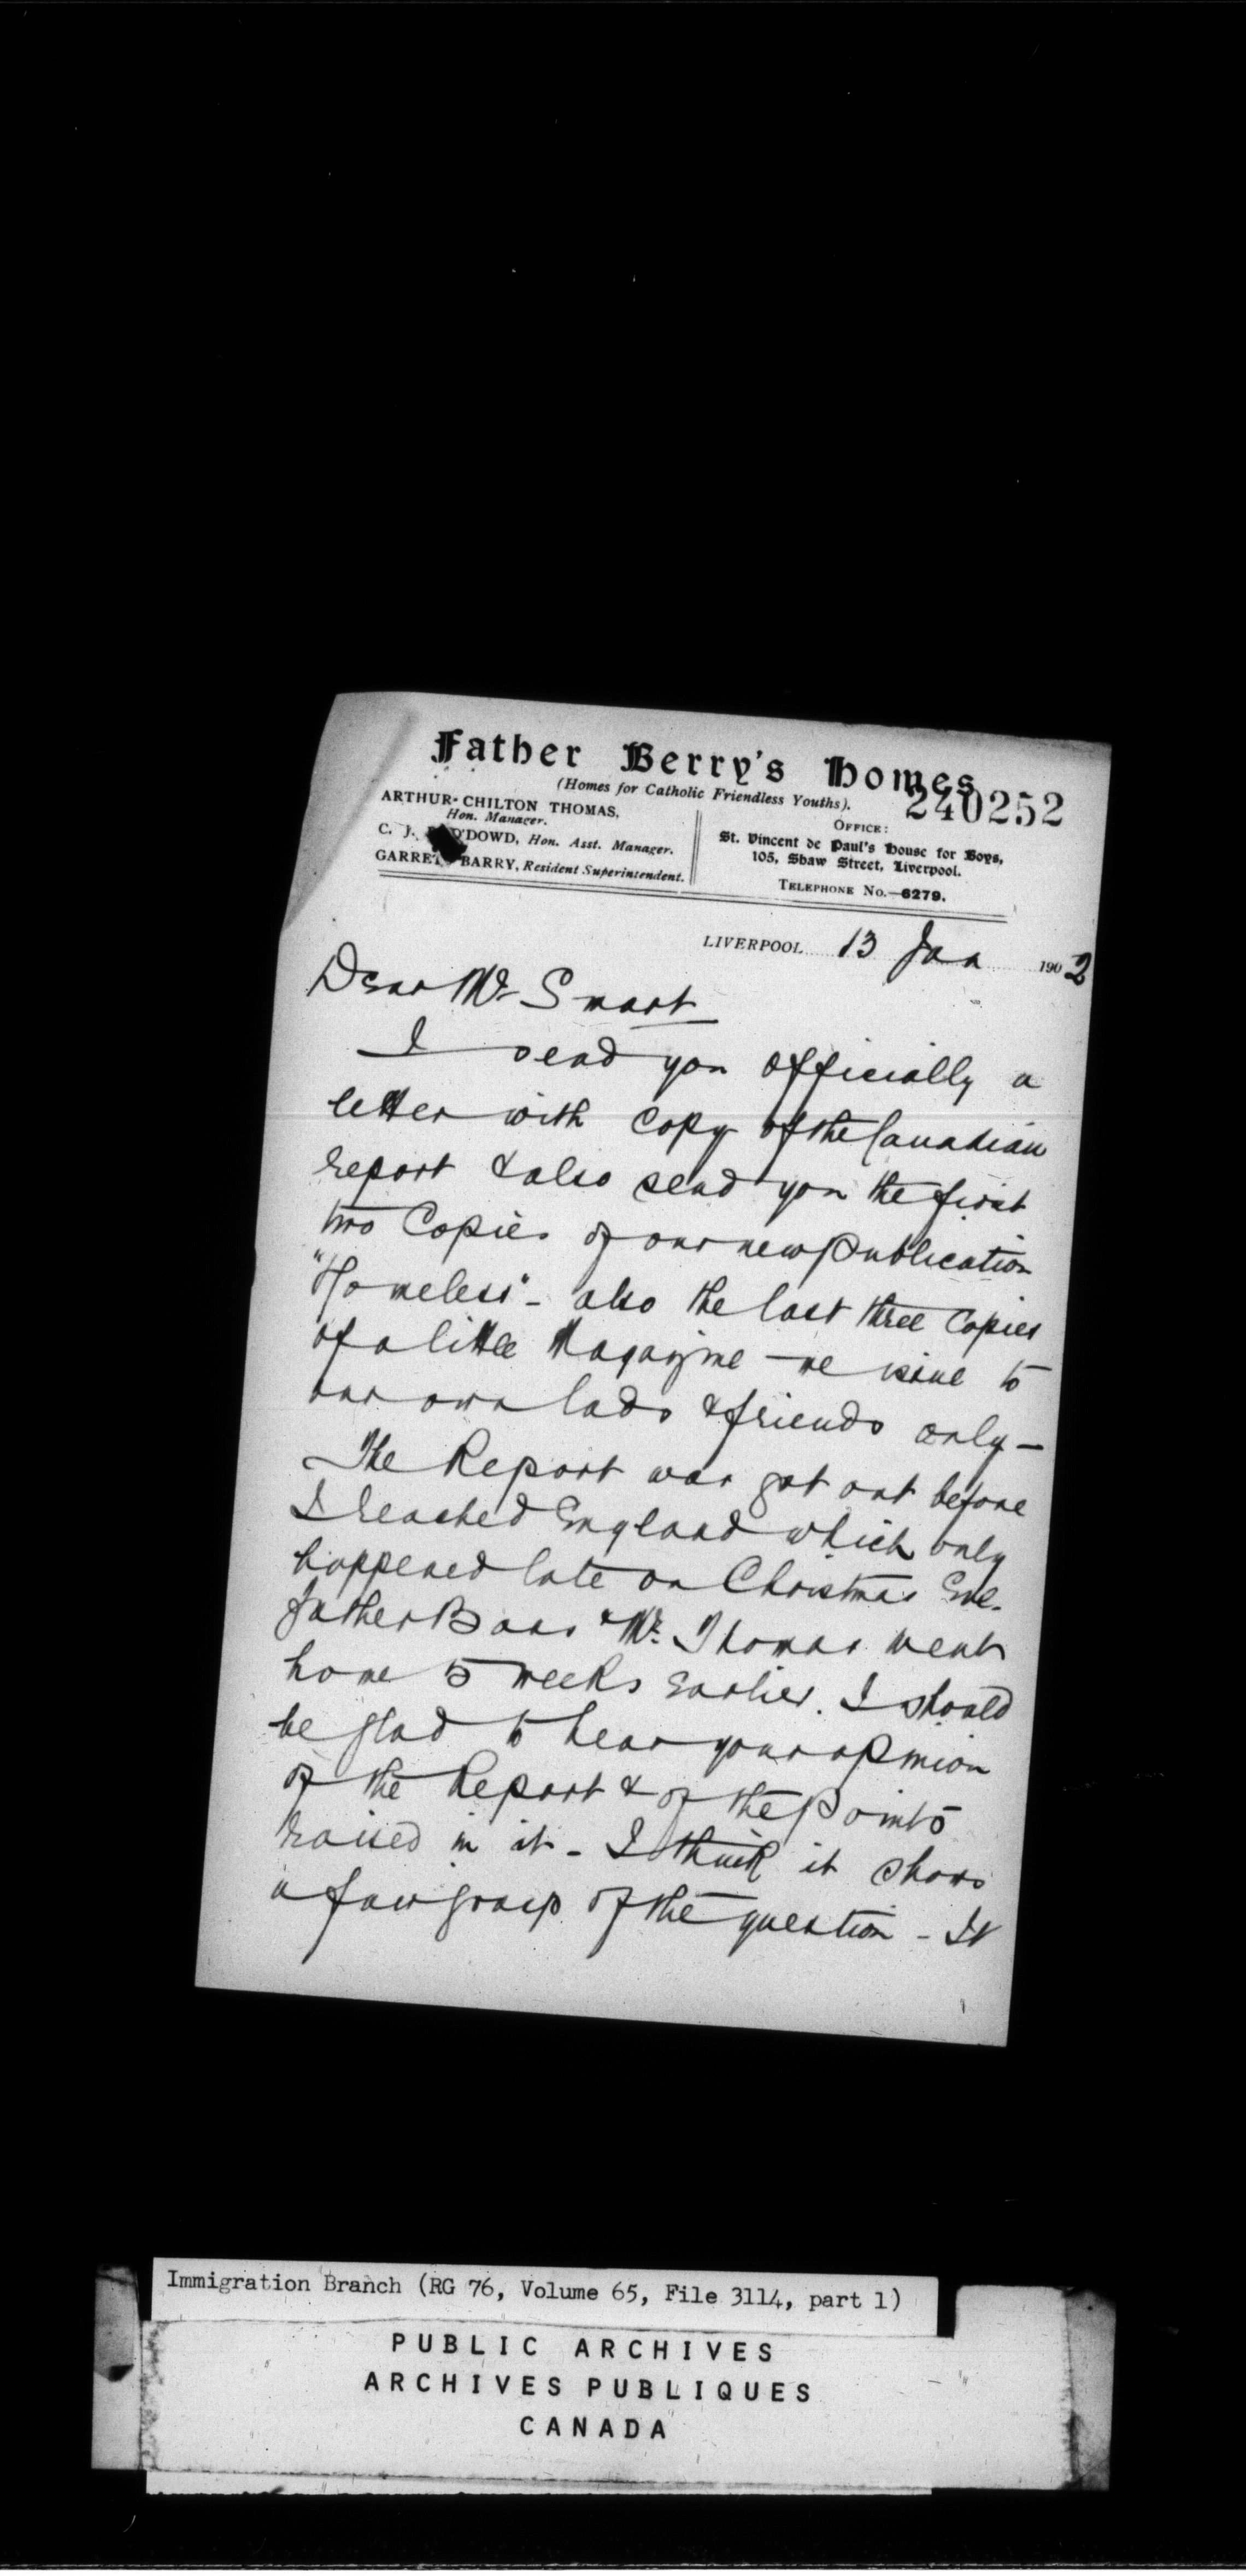 Father Berry's Homes
(Homes for Catholic Friendless Youths).
240252
ARTHUR CHILTON THOMAS,
Hon. Manager.
C. J. O'DOWD, Hon. Asst. Manager.
GARRET BARRY, Resident Superintendent.
OFFICE:
St. Vincent de Paul's House for Boys,
105, Shaw Street, Liverpool.
TELEPHONE No.—6279.
LIVERPOOL 13 Jan 1902
Dear Mr Smart
I send you officially a
letter with copy of the Canadian
report & also send you the first
two Copies of our new publication
"Homeless" - also the last three copies
of a little Magazine - we issue to
our own lads & friends only -
The Report was got out before
I reached England which only
happened late on Christmas Eve.
Father Bans & Mr. Thomas went
home 5 weeks earlier. I should
be glad to hear your opinion
of the Report & of the points
raised in it - I think it shows
a fair grasp of the question - It
Immigration Branch (RG 76, Volume 65, File 3114, part 1)
PUBLIC ARCHIVES
ARCHIVES PUBLIQUES
CANADA